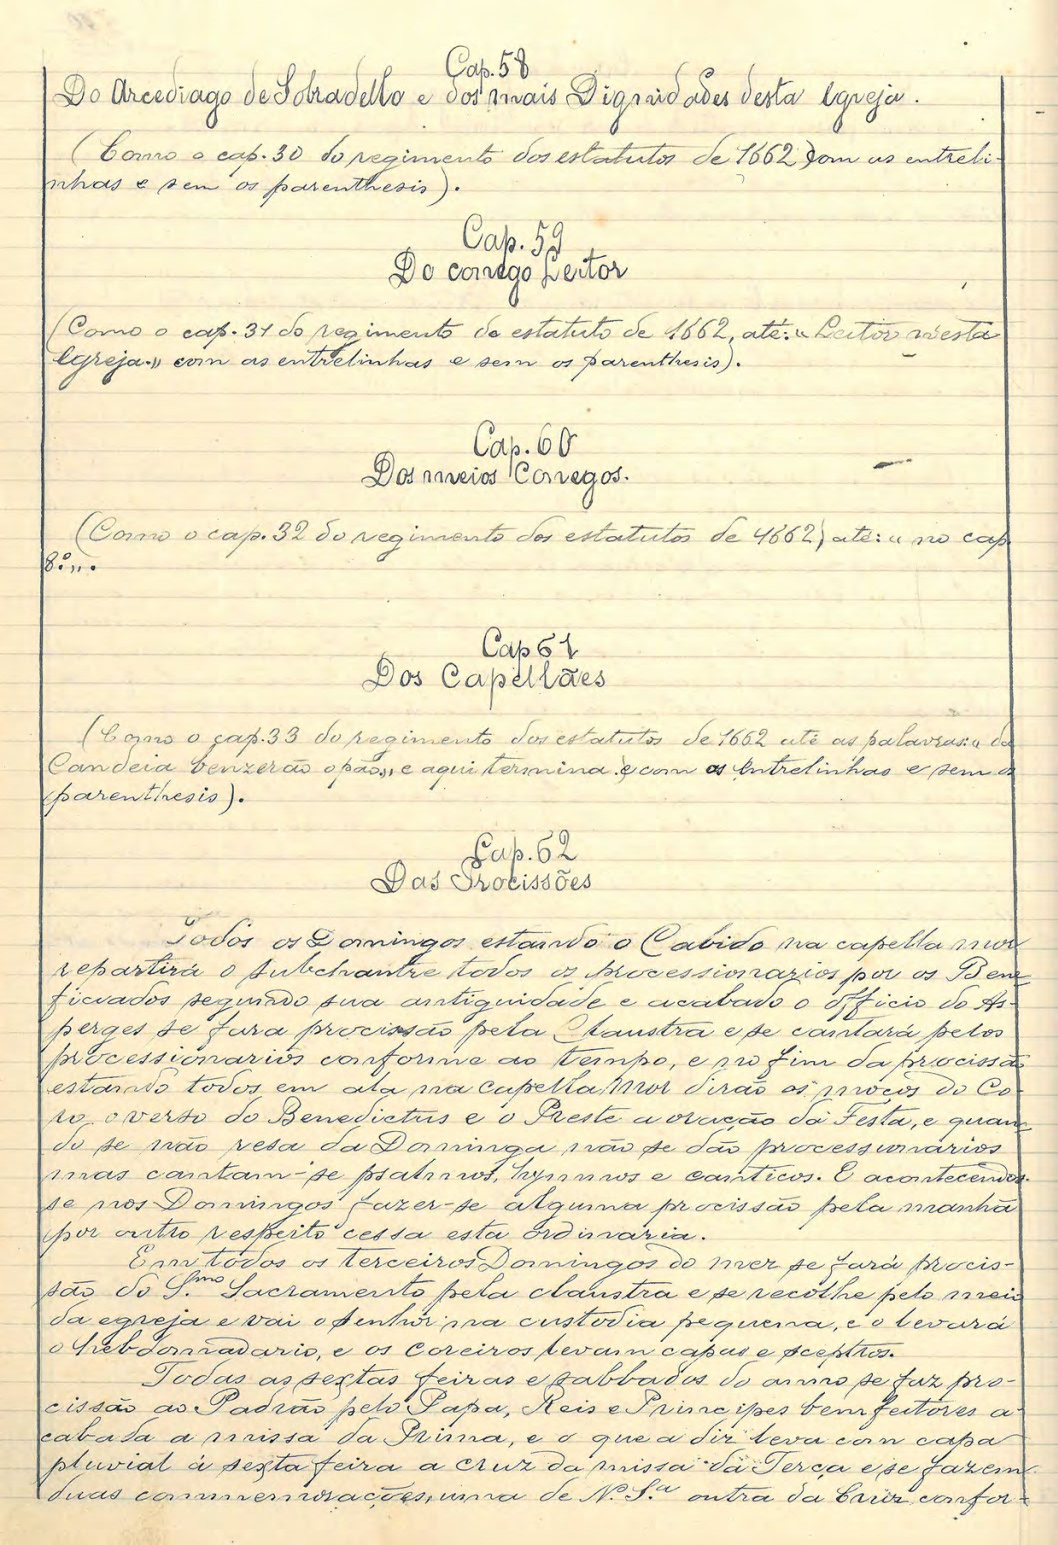 Cap. 58
Do Arcediago de Sobradello e dos mais Dignidades desta Igreja.
(Como o cap. 30 do regimento dos estatutos de 1662) com as entreli-
nhas e sem os parenthesis).
Cap. 59
Do conego Leitor
(Como o cap. 31 do regimento do estatuto de 1662, até: "Leitor n'esta
Igreja.," com as entrelinhas e sem os parenthesis).
Cap. 60
Dos meios Conegos.
(Como o cap. 32 do regimento dos estatutos de 1662) até: "no cap
8.º,,.
Cap 61
Dos Capellães
(Como o cap. 33 do regimento dos estatutos de 1662 até as palavras: "da
Candeia benzerão o pão,, e aqui termina e com as entrelinhas e sem os
parenthesis).
Cap. 62
Das Procissões
Todos os Domingos estando o Cabido na capella mor
repartirá o subchantre todos os processionarios por os Bene
ficiados segundo sua antiguidade e acabado o officio do As-
perges se fara procissão pela Claustra e se cantará pelos
processionarios conforme ao tempo, e no fim da procissão
estando todos em ala na capella Mor dirão os moços do Co-
ro, o verso do Benedictus e o Preste a oração da Festa, e quan-
do se não resa da Dominga não se dão processionarios
mas cantam-se psalmos, hymnos e canticos. E acontecendo-
se nos Domingos fazer-se alguma procissão pela manhã
por outro respeito cessa esta ordinaria.
Em todos os terceiros Domingos do mez se fará procis-
são do S.mo Sacramento pela claustra e se recolhe pelo meio
da egreja e vai o Senhor na custodia pequena, e o levará
o hebdomadario, e os coreiros levam capas e sceptros.
Todas as sextas feiras e sabbados do anno se faz pro-
cissão ao Padrão pelo Papa, Reis e Principes bemfeitores a-
cabada a missa da Prima, e o que a diz leva com capa
pluvial á sexta feira a cruz da missa da Terça e se fazem
duas commemorações, uma de N. S.ª outra da Cruz, confor-